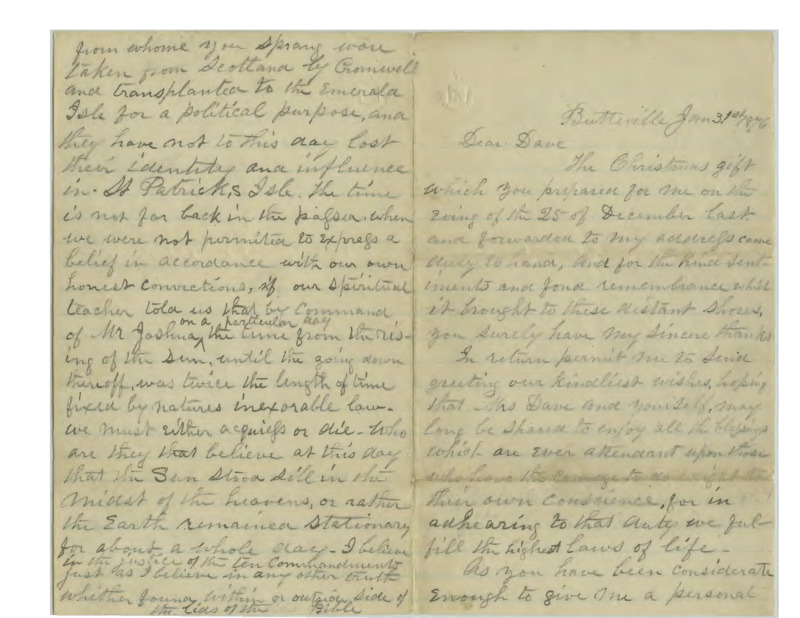 from whome you sprang ware
taken from Scotland by Cromwell
and transplanted to the Emerald
Isle for a political purpose, and
they have not to this day lost
their identity and influence
in St Patrick,s Isle. The time
is not far back in the when
we were not permited to express a
belief in accordance with our own
honest convictions, if our spiritual
teacher told us that by Command
on a perticular day
of Mr Joshua, the time from the ris-
ing of the Sun, until the going down
thereoff, was twice the length of time
fixed by natures inexorable law-
we must either acquiess or die- Who
are they that believe at this day
that the Sun stood still in the
midst of the heavens, or rather
the Earth remained Stationary
for about a whole day- I believe
in the justice of the ten Commandments
just as I believe in any other truth
whither found within or outside side of
the lids of the Bible
Butteville Jan 31st 1876
Dear Dave
The Christmas gift
which you prepared for me on the
Eving of the 25 of December last
and forwarded to my address came
duly to hand, And for the kind sent-
iments and fond remembrance whilst
it brought to these distant shores,
you surely have my sincere thanks
In return permit me to send
greeting our kindliest wishes, hoping
that Mrs Dave and yourself, may
long be spared to enjoy all the blessings
which are ever attendant upon those
who have the courage to do right to
their own conscience, for in
adhearing to that duty we ful-
fill the highest laws of life-
As you have been considerate
enough to give me a personal